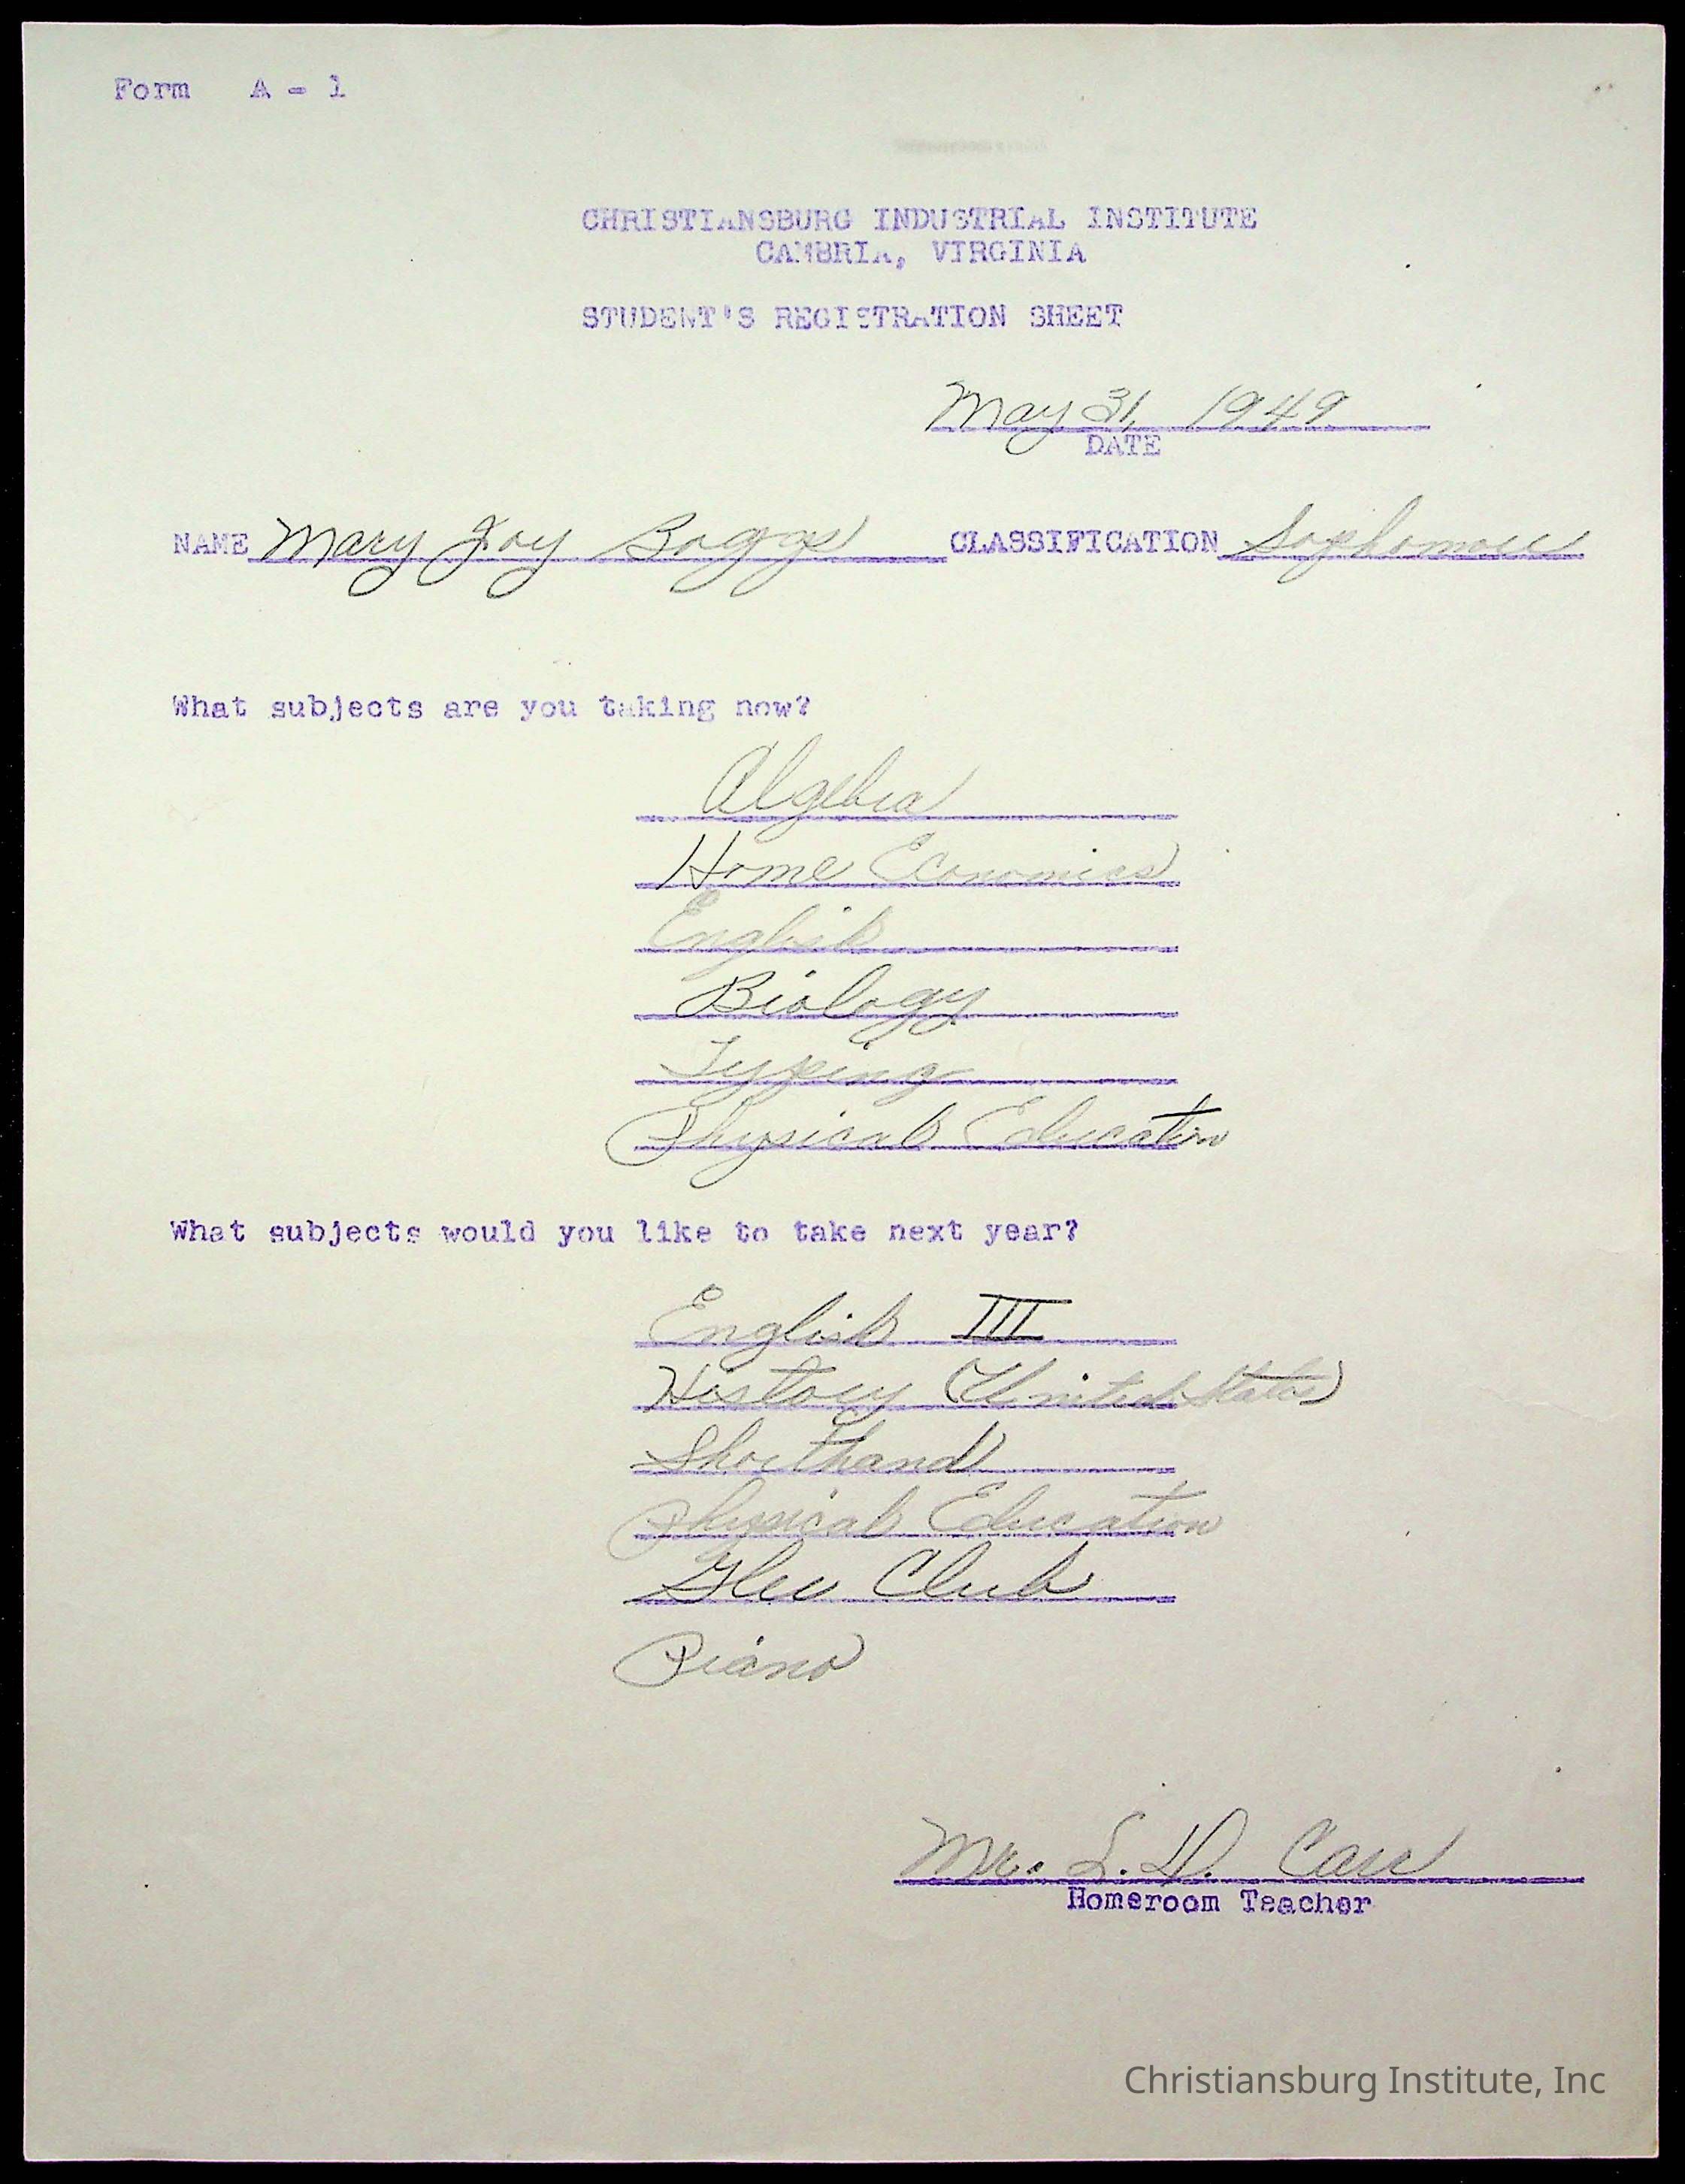 Form A - 1
CHRISTIANSBURG INDUSTRIAL INSTITUTE
CAMBRIA, VIRGINIA
STUDENT'S REGISTRATION SHEET
May 31, 1949
DATE
NAME Mary Joy Boggs CLASSIFICATION Sophomore
What subjects are you taking now?
Algebra
Home Economics
English
Biology
Typing
Physical Education
What subjects would you like to take next year?
English III
History (United States)
Shorthand
Physical Education
Glee Club
Piano
Mr. S. D. Carr
Homeroom Teacher
Christiansburg Institute, Inc